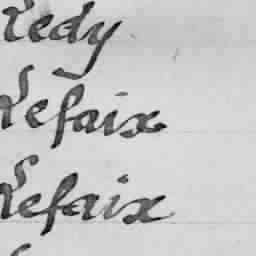 Ledy
Lefaix
Lefaix